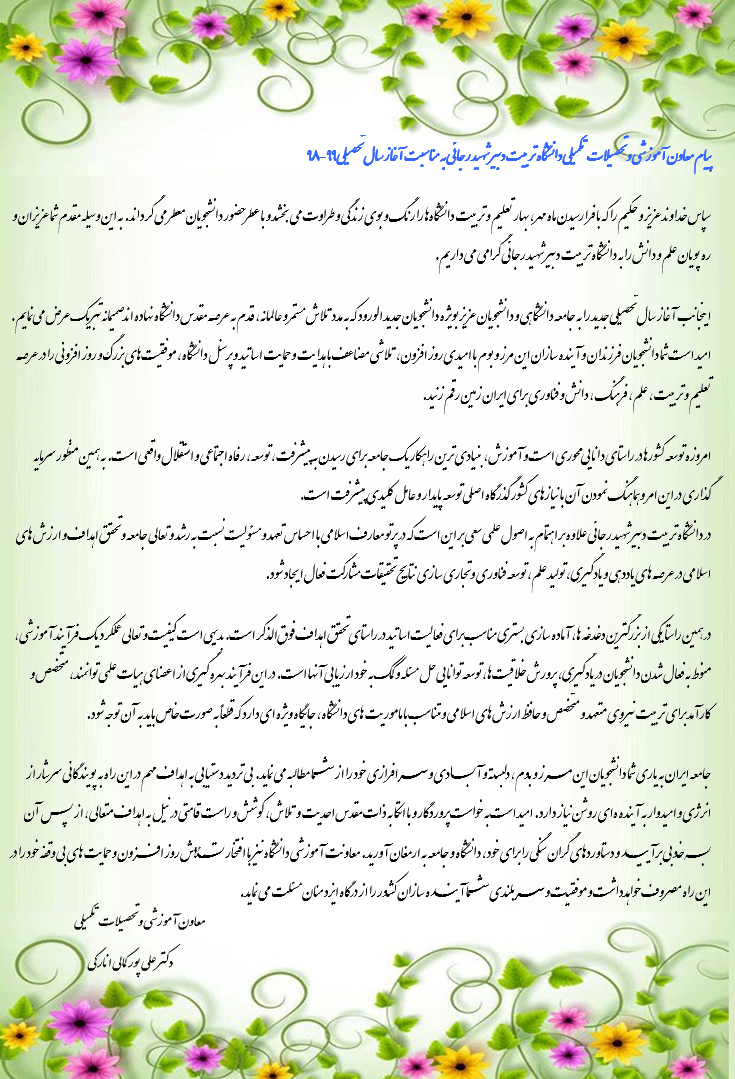 پیام معاون آموزشی و تحصیلات تکمیلی دانشگاه تربیت دبیر شهید رجائی به مناسبت آغاز سال تحصیلی ۹۹-۹۸
سپاس خداوند عزیز و حکیم را که با فرا رسیدن ماه مهر، بهار تعلیم و تربیت دانشگاه ها را رنگ و بوی زندگی و طراوت می بخشد و با عطر حضور دانشجویان معطر می گرداند. به این وسیله مقدم شما عزیزان و
ره پویان علم و دانش را به دانشگاه تربیت دبیر شهید رجائی گرامی می داریم.
اینجانب آغاز سال تحصیلی جدید را به جامعه دانشگاهی و دانشجویان عزیز بویژه دانشجویان جدید الورود که به مدد تلاش مستمر و عالمانه، قدم به عرصه مقدس دانشگاه نهاده اند صمیمانه تبریک عرض می نمایم.
امید است شما دانشجویان فرزندان و آینده سازان این مرز و بوم با امیدی روز افزون، تلاشی مضاعف با هدایت و حمایت اساتید و پرسنل دانشگاه، موفقیت های بزرگ و روز افزونی را در عرصه
تعلیم و تربیت، علم، فرهنگ، دانش و فناوری برای ایران زمین رقم زنید.
امروزه توسعه کشورها در راستای دانایی محوری است و آموزش، بنیادی ترین راهکار یک جامعه برای رسیدن به پیشرفت، توسعه، رفاه اجتماعی و استقلال واقعی است. به همین منظور سرمایه
گذاری در این امر و هماهنگ نمودن آن با نیازهای کشور گذرگاه اصلی توسعه پایدار و عامل کلیدی پیشرفت است.
در دانشگاه تربیت دبیر شهید رجائی علاوه بر اهتمام به اصول علمی سعی بر این است که در پرتو معارف اسلامی با احساس تعهد و مسئولیت نسبت به رشد و تعالی جامعه و تحقق اهداف و ارزش های
اسلامی در عرصه های یاددهی و یادگیری، تولید علم، توسعه فناوری و تجاری سازی نتایج تحقیقات مشارکت فعال ایجاد شود.
در همین راستا یکی از بزرگترین دغدغه ها، آماده سازی بستری مناسب برای فعالیت اساتید در راستای تحقق اهداف فوق الذکر است. بدیهی است کیفیت و تعالی عملکرد یک فرآیند آموزشی،
منوط به فعال شدن دانشجویان در یادگیری، پرورش خلاقیت ها، توسعه توانایی حل مسئله و کمک به خود ارزیابی آنها است. در این فرآیند بهره گیری از اعضای هیات علمی توانمند، متخصص و
کارآمد برای تربیت نیروی متعهد و متخصص و حافظ ارزش های اسلامی و متناسب با ماموریت های دانشگاه، جایگاه ویژه ای دارد که قطعاً به صورت خاص باید به آن توجه شود.
جامعه ایران به یاری شما دانشجویان این مرز و بوم، دلبسته و آبادی و سرافرازی خود را از شما مطالبه می نماید. بی تردید دستیابی به اهداف مهم در این راه به پویندگانی سرشار از
انرژی و امیدوار به آینده ای روشن نیاز دارد. امید است به خواست پروردگار و با اتکا به ذات مقدس احدیت و تلاش، کوشش و راست قامتی در نیل به اهداف متعالی، از پس آن
به خوبی برآیید و دستاوردهای گران سنگی را برای خود، دانشگاه و جامعه به ارمغان آورید. معاونت آموزشی دانشگاه نیز با افتخار تلاش روز افزون و حمایت های بی وقفه خود را در
این راه مصروف خواهد داشت و موفقیت و سربلندی شما آینده سازان کشور را از درگاه ایزد منان مسئلت می نماید.
معاون آموزشی و تحصیلات تکمیلی
دکتر علی پور کمالی انارکی